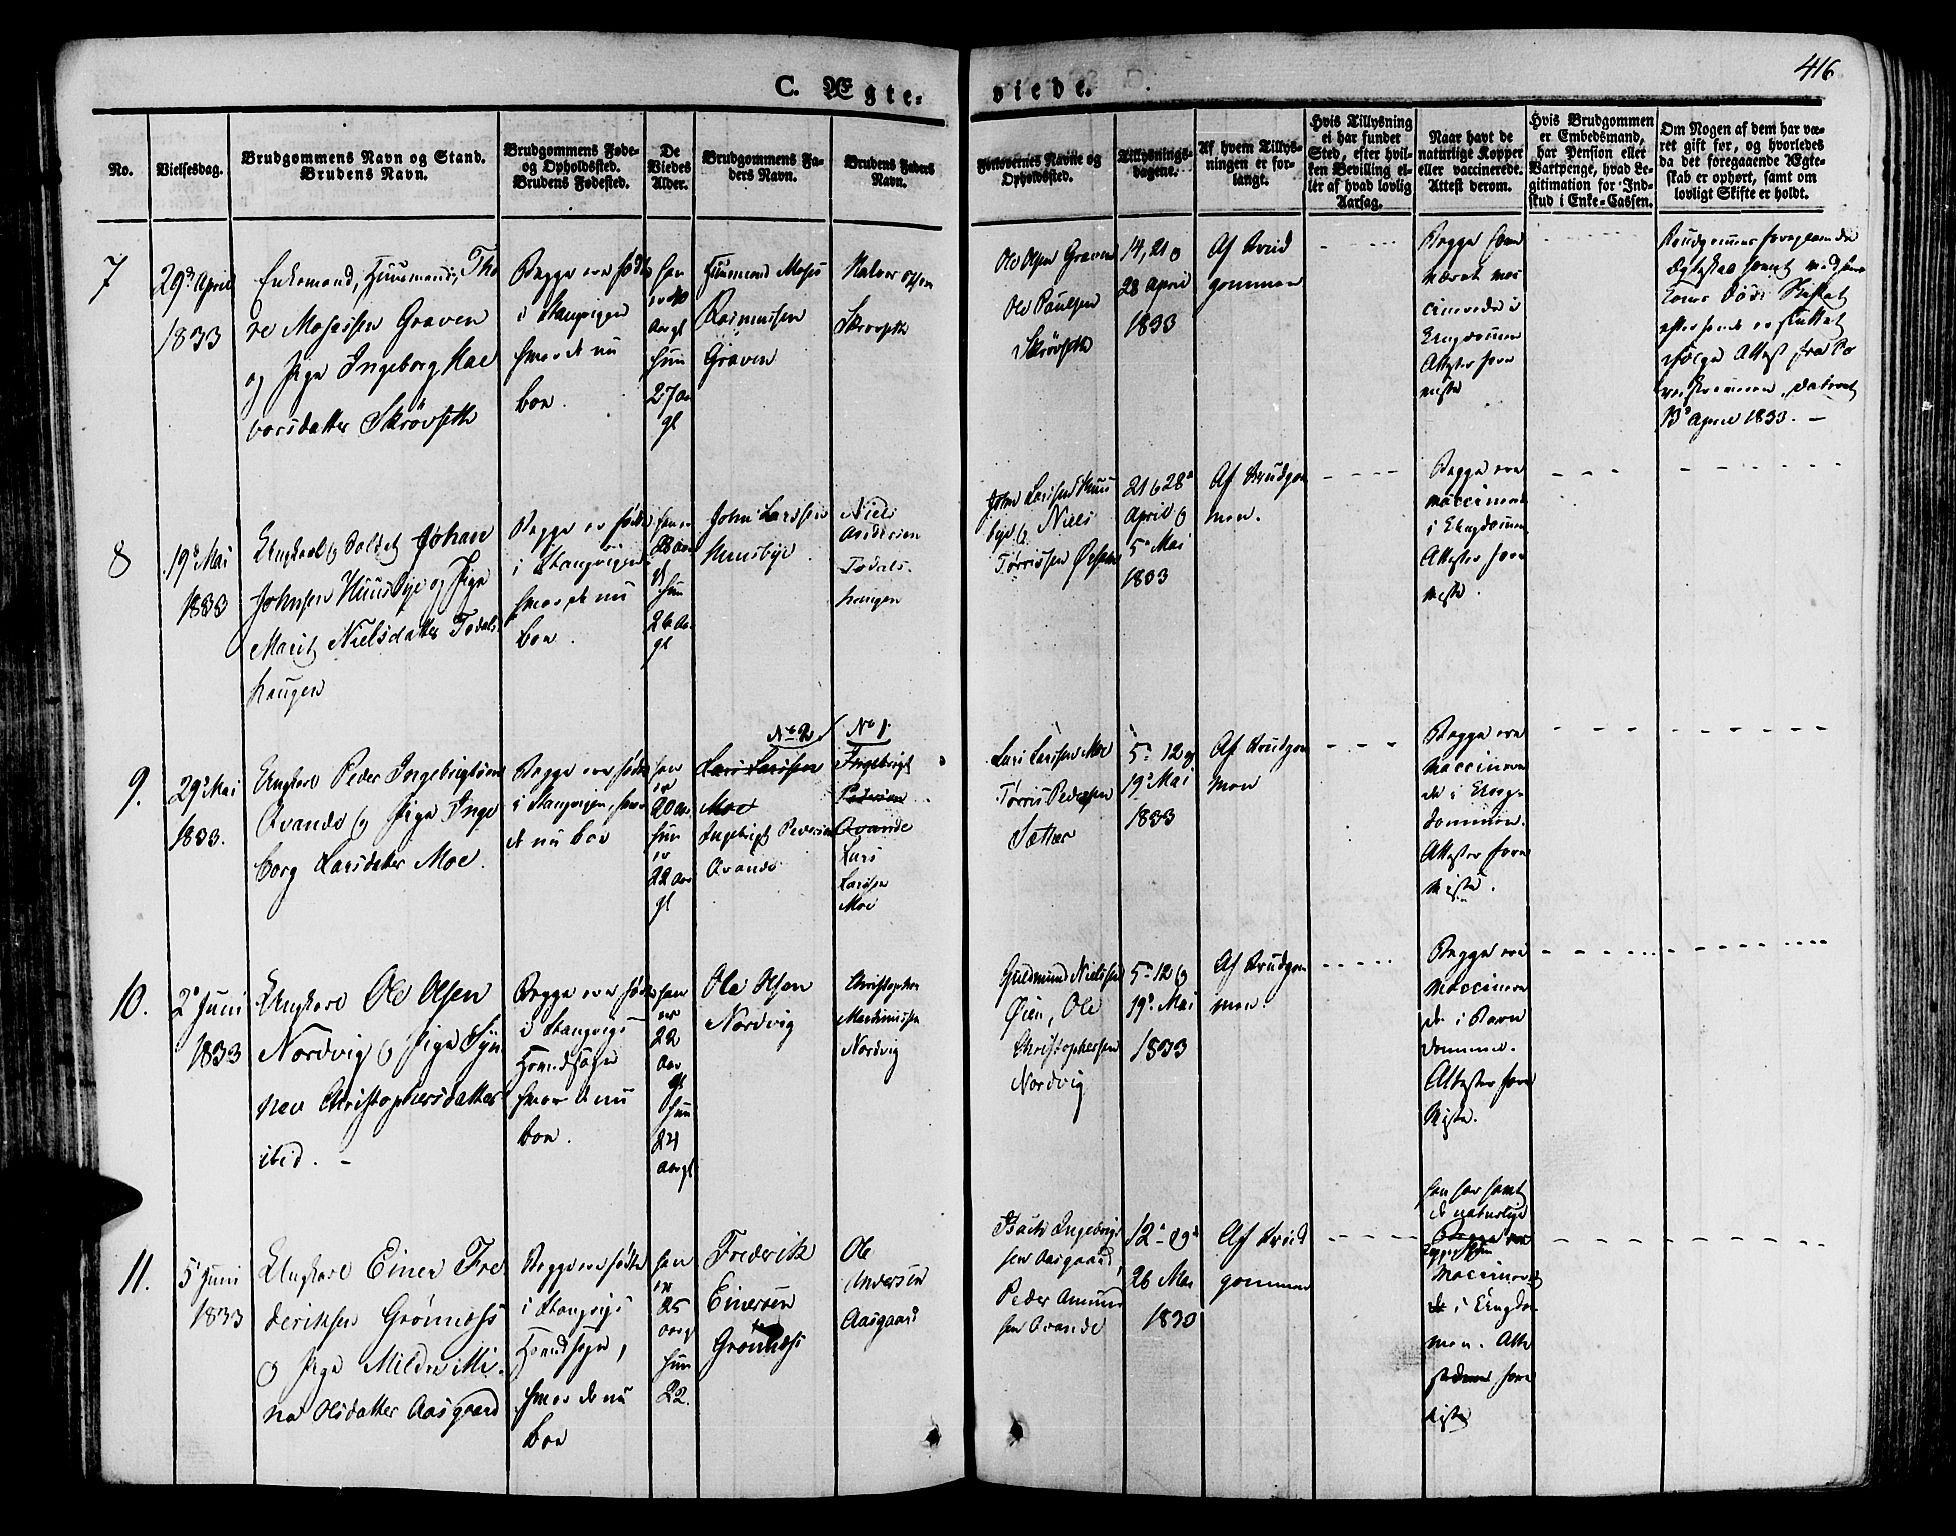 416
C. Ægte-
viede.
No.
Vielsesdag.
Brudgommens Navn og Stand.
Brudens Navn.
Brudgommens Føde-
og Opholdssted.
Brudens Fødested.
De
Viedes
Alder.
Brudgommens Fa-
ders Navn.
Brudens Faders
Navn.
Forlovernes Navne og
Opholdssted.
Tillysnings-
dagene.
Af hvem Tillys-
ningen er for-
langt.
Hvis Tillysning
ei har fundet
Sted, efter hvil-
ken Bevilling el-
ler af hvad lovlig
Aarsag.
Naar havt de
naturlige Kopper
eller vaccinerede.
Attest derom.
Hvis Brudgommen
er Embedsmand,
har Pension eller
Vartpenge, hvad Le-
gitimation for Ind-
skud i Enke-Cassen.
Om Nogen af dem har væ-
ret gift før, og hvorledes
da det foregaaende Ægte-
skab er ophørt, samt om
lovligt Skifte er holdt.
7
29de April
1833
Enkemand, Huusmand, Tho
re Mosessen Graven
og Pige Ingeborg Hal
vorsdatter Skrövseth
Begge ere fødte
i Stangvigen
hvor de nu
boe.
han
aargl
hun
27 aar
gl
Huusmand Moses
Rasmussen
Graven
Halvor Olsen
Skrövseth
Ole Olsen Graven
Ole Paulsen
Skrövseth
14, 21 og
28 April
1833
Af Brud
gommen
Begge
været vac
cinerede i
Ungdommen
Attester fore
viiste
Brudgommens foregaaende
Ægteskab
Kones Död, Skiftet
efter hende er sluttet
ifölge Attest fra
dateret
13de April 1833. —
8
19de Mai
1833
Ungkarl og Soldat Johan
Johnsen Huusbye og Pige
Marit Nielsdatter Todals
haugen
Begge ere fødte
i Stangvigen
hvor de nu
boe.
han er
28 aar
gl
hun
26 aar
gl
John Larssen
Huusbye
Niels
Andersen
Todals-
haugen
John Larssen Huus
bye og Niels
Törrissen
21 & 28de
April og
5te Mai
1833
Af Brudgom
men.
Begge ere
vaccinerede
i Ungdommen
Attester fore
viste.
9.
29de Mai
1833.
Ungkarl Peder Ingebrigtsen
Qvande og Pige Inge
borg Larsdatter Moe.
Begge ere fødte
i Stangvigen, hvor
de nu boe
han
er
20 aar
hun
er
22 aar
gl
No 2
Lars Larssen
Moe
Ingebrigt Pedersen
Qvande
No 1.
Ingebrigt
Pedersen
Qvande
Lars
Larssen
Moe
Lars Larssen Moe
Törris Pedersen
Sætter
5te 12 og
19de Mai
1833
Af Brudgom
men
Begge ere
vaccinere
de i Ung-
dommen.
Attester fore
viste.
10.
2den Juni
1833
Ungkarl Ole Olsen
Nordvig og Pige Syn
neve Christophersdatter
ibid. —
Begge ere fødte
i Stangvigs
Hovedsogn
hvor de nu
boe.
han
er
22
aar
gl
hun
24
aargl
Ole Olsen
Nordvig
Christopher
Nordvig
Guldmund Nielssen
Öien, Ole
Christophersen
Nordvig
5te 12 og
19de Mai
1833
Af Brudgom
men.
Begge ere
vaccinere
de i Barn
dommen.
Attester fore
viste.
11.
5te Juni
1833
Ungkarl Einer Fre
deriksen Grönnæss
og Pige Mildri Mi-
na Olsdatter Aasgaard
Begge ere fødte
i Stangvigs
Hovedsogn,
hvor de nu
boe
han
er
25
aargl
hun
22.
Frederik
Einersen
Grönnæss
Ole
Andersen
Aasgaard
Isach Ingebrigt
sen Aasgaard,
Peder Amund
sen Qvande
12te 19de
26 Mai
1833
Af Brud
gommen
han har havt
de naturlige
Kopper
vaccineret
i Ungdom
men. Atte
fore
viste